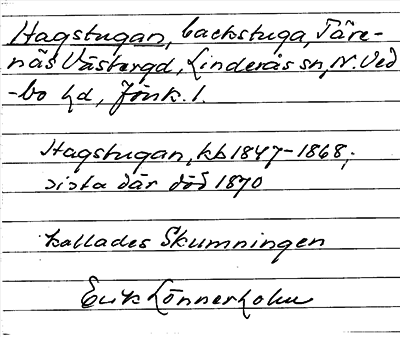 Hagstugan, backstuga, Täre-
näs Västergd, Linderås sn, N. Ved
-bo hd, Jönk. l.
Hagstugan, kb 1847-1868;
sista där död 1870
kallades Skumningen
Erik Lönnerholm